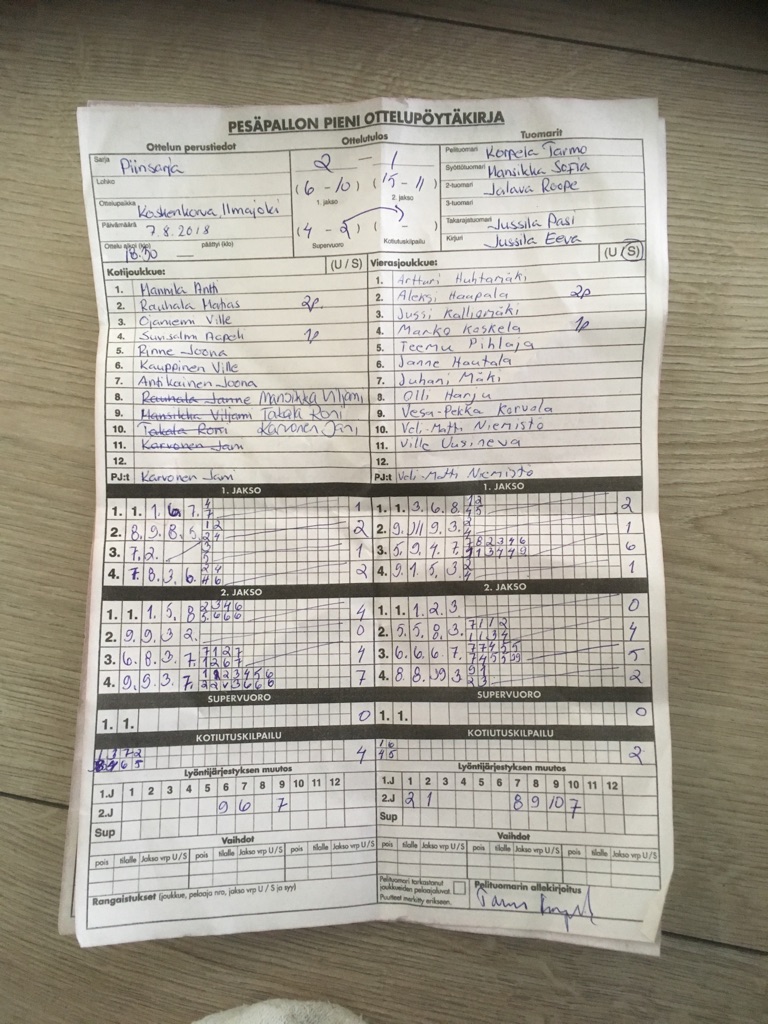 PESÄPALLON PIENI OTTELUPÖYTÄKIRJA
Ottelun perustiedot
Sarja
Piinsarja
Lohko
Ottelupaikka
Koskenkorva, Ilmajoki
Päivämäärä
7.8.2018
Ottelu alkoi (klo) päättyi (klo)
18.30 —
Ottelutulos
2 - 1
(6 - 10) (15 - 11)
1. jakso 2. jakso
(4 - 2) ( - )
Supervuoro Kotiutuskilpailu
Tuomarit
Pelituomari Korpela Tarmo
Syöttötuomari Mansikka Sofia
2-tuomari Jalava Roope
3-tuomari
Takarajatuomari Jussila Pasi
Kirjuri Jussila Eeva
Kotijoukkue: (U / S)
1. Mannila Antti
2. Rauhala Matias 2p.
3. Ojaniemi Ville
4. Sunisalmi Aapeli 1p
5. Rinne Joona
6. Kauppinen Ville
7. Antikainen Joona
8. Rauhala Janne Mansikka Viljami
9. Mansikka Viljami Takala Roni
10. Takala Roni Karvonen Jani
11. Karvonen Jani
12.
PJ:t Karvonen Jani
Vierasjoukkue: (U / S)
1. Artturi Huhtamäki
2. Aleksi Haapala 2p
3. Jussi Kalliomäki
4. Marko Koskela 1p
5. Teemu Pihlaja
6. Janne Hautala
7. Juhani Mäki
8. Olli Harju
9. Vesa-Pekka Kervola
10. Veli-Matti Niemistö
11. Ville Uusineva
12.
PJ:t Veli-Matti Niemistö
1. JAKSO
1. 1. 1. 6. 7. 1
2. 8. 9. 8. 5. 2
3. 7. 2. 1
4. 7. 8. 3. 6. 2
1. JAKSO
1. 1. 3. 6. 8. 2
2. 9. 11 9. 3. 1
3. 5. 9. 4. 7. 6
4. 9. 1. 5. 3. 1
2. JAKSO
1. 1. 1. 5. 8 4
2. 9. 9. 3 2. 0
3. 6. 8. 3. 7. 4
4. 9. 9. 3. 7. 7
2. JAKSO
1. 1. 1. 2. 3 0
2. 5. 5. 8. 3. 4
3. 6. 6. 6. 7. 5
4. 8. 8. 3 2
SUPERVUORO
1. 1. 0
SUPERVUORO
1. 1. 0
KOTIUTUSKILPAILU
4
KOTIUTUSKILPAILU
2
Lyöntijärjestyksen muutos
1.J 1 2 3 4 5 6 7 8 9 10 11 12
2.J 9 6 7
Sup
Lyöntijärjestyksen muutos
1.J 1 2 3 4 5 6 7 8 9 10 11 12
2.J 2 1 8 9 10 7
Sup
Vaihdot
pois tilalle Jakso vrp U/S pois tilalle Jakso vrp U/S pois tilalle Jakso vrp U/S
Vaihdot
pois tilalle Jakso vrp U/S pois tilalle Jakso vrp U/S pois tilalle Jakso vrp U/S
Rangaistukset (joukkue, pelaaja nro, jakso vrp U / S ja syy)
Pelituomari tarkastanut
joukkueiden pelaajaluvat
Puutteet merkitty erikseen.
Pelituomarin allekirjoitus